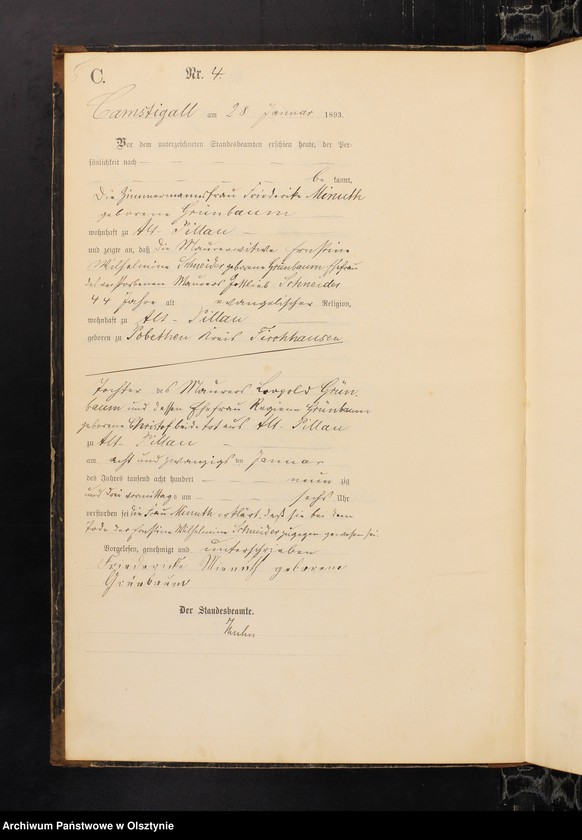 C. Nr. 4.
Camstigall am 28 Januar 1893.
Vor dem unterzeichneten Standesbeamten erschien heute, der Per-
sönlichkeit nach
be kannt,
die Zimmermannsfrau Friederike Minuth
geborene Grünbaum
wohnhaft zu Alt-Pillau
und zeigte an, daß die Maurerwitwe Ernstine
Wilhelmine Schneider geborene Grünbaum Ehefrau
des verstorbenen Maurers Gottlieb Schneider
44 Jahre alt evangelischer Religion,
wohnhaft zu Alt-Pillau
geboren zu Pobethen Kreis Fischhausen
Tochter des Maurers Leopold Grün-
baum und dessen Ehefrau Regiene Grünbaum
geborene Christof beide tot aus Alt-Pillau
zu Alt-Pillau
am acht und zwanzigsten Januar
des Jahres tausend acht hundert neun zig
und drei vormittags um sechs Uhr
verstorben sei die Frau Minuth erklärt, daß sie bei dem
Tode der Ernstine Wilhelmine Schneider zugegen gewesen sei.
Vorgelesen, genehmigt und unterschrieben
Friedericke Minuth geborene
Grünbaum
Der Standesbeamte.
Archiwum Państwowe w Olsztynie